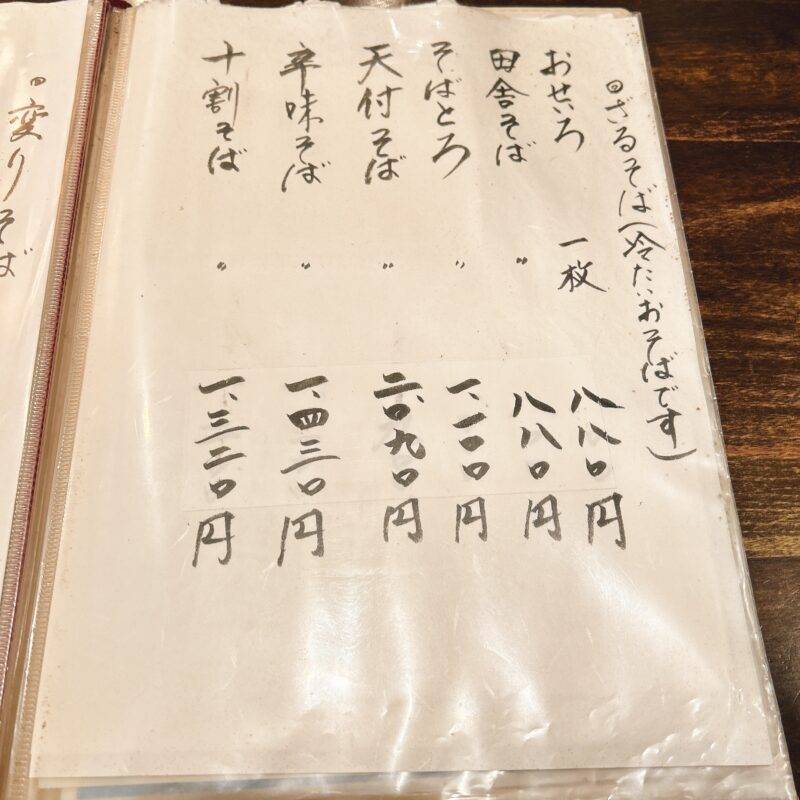 ざるそば(冷たいおそばです)
おせいろ 一枚 八八〇円
田舎そば 〃 八八〇円
そばとろ 〃 一、一〇〇円
天付そば 〃 二、〇九〇円
辛味そば 〃 一、四三〇円
十割そば 〃 一、三二〇円
変りそば